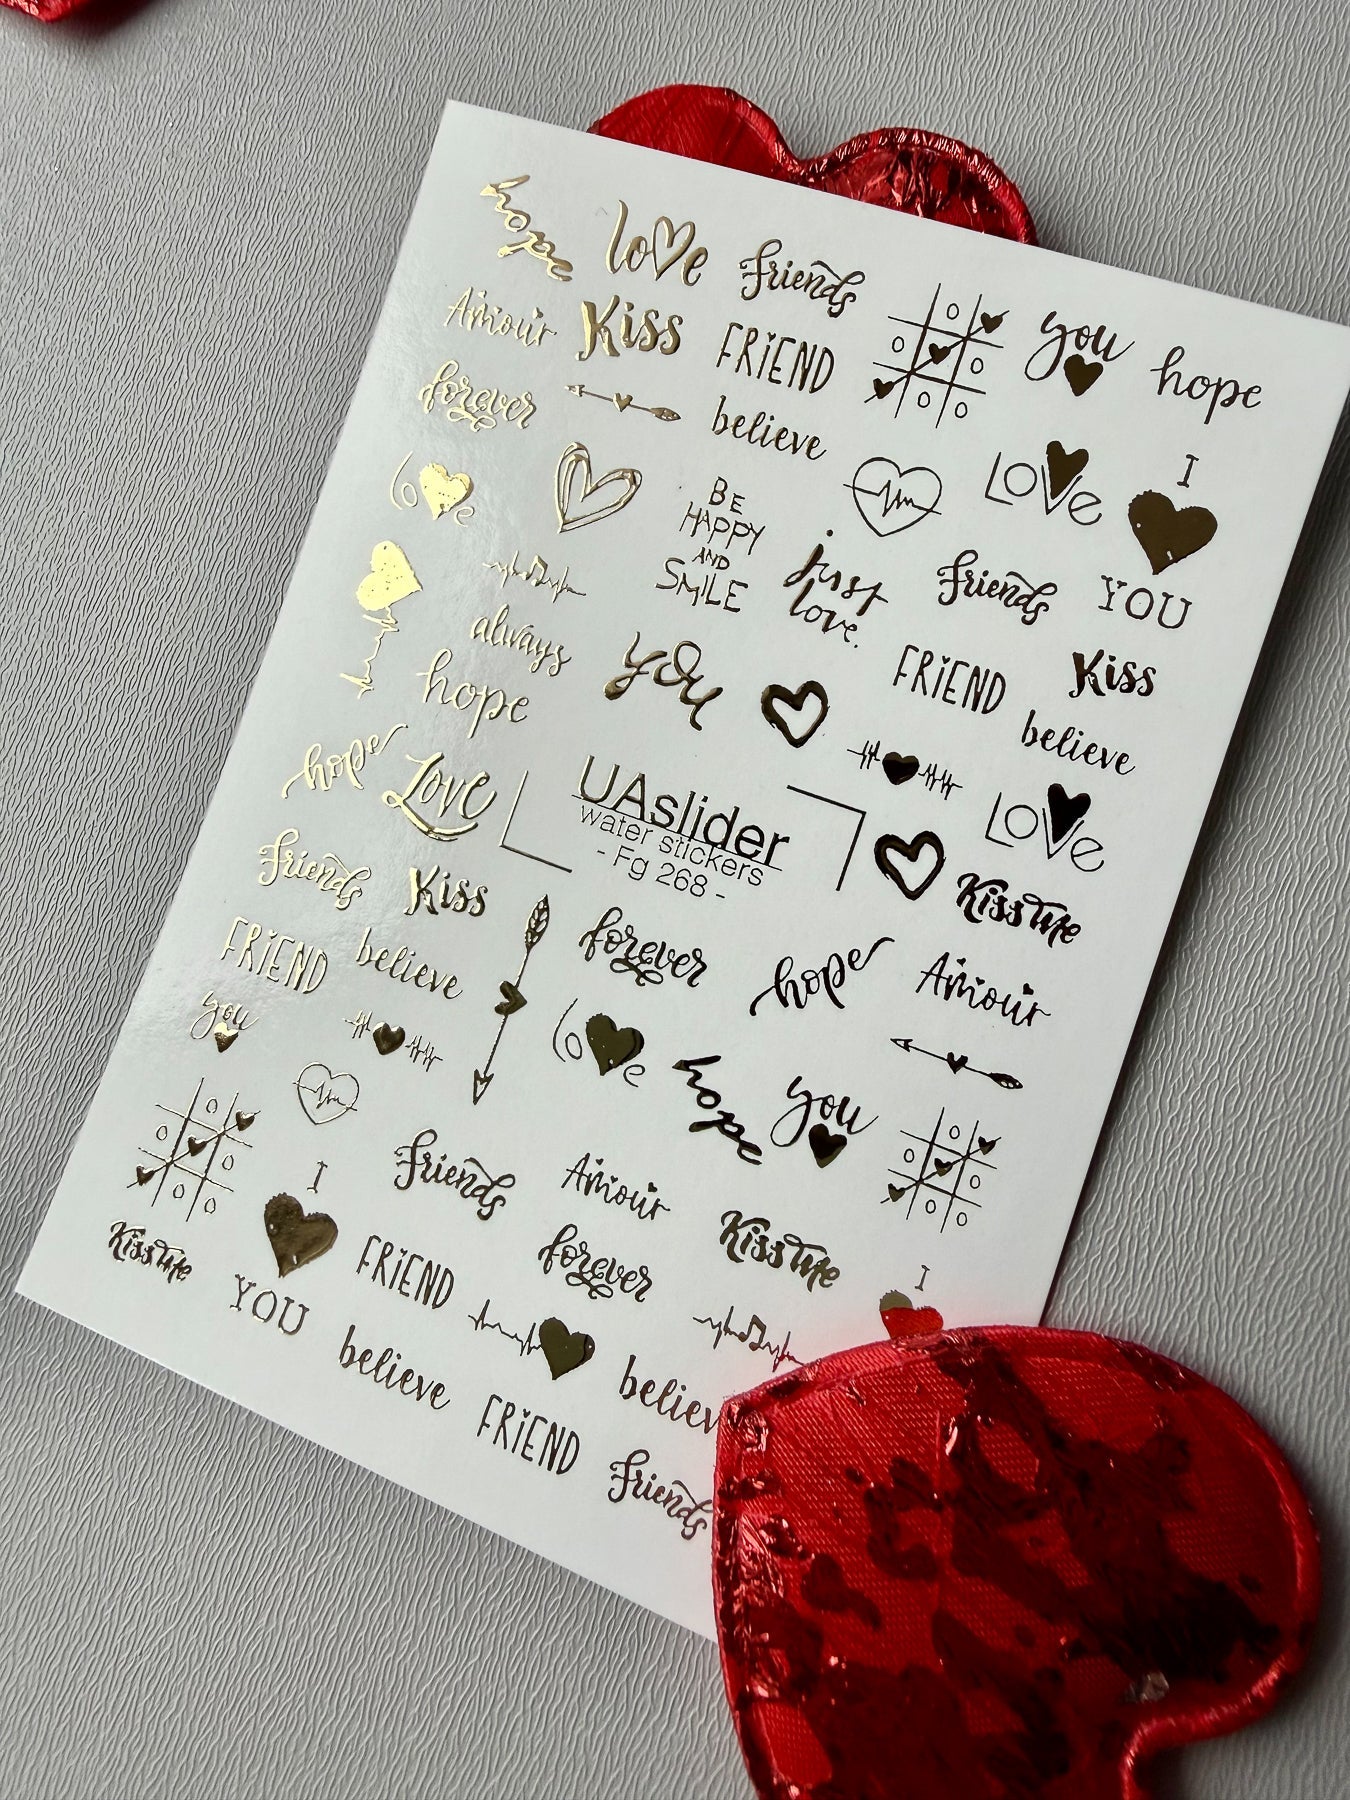 hope
love
friends
Amour
Kiss
FRiEND
you
hope
forever
believe
love
LOVe
I
YOU
BE
HAPPY
AND
SMiLE
just
love.
friends
always
you
FRiEND
Kiss
hope
believe
hope
Love
UAslider
water stickers
- Fg 268 -
LOVe
Kiss Me
friends
Kiss
forever
hope
Amour
FRiEND
believe
you
love
hope
you
friends
Amour
Kiss Me
I
YOU
Kiss Me
FRiEND
forever
I
believe
believ
FRiEND
friends